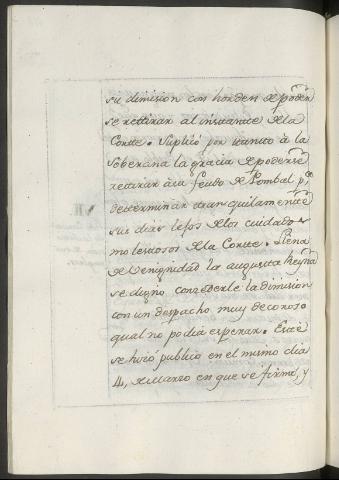 su dimision con horden de poder
se rettirar al instante de la
Cortte. Suplicò por tanto à la
Soberana la gracia de poderse
rettirar à su feudo de Pombal p.ª
determinar tranquilamente
sus dias lejos de los cuidados
molestosos de la Cortte. Llena
de Venignidad la augusta Reyna
se digno conzederle la dimision
con un despacho muy decoroso
qual no podia esperar. Este
se hizo publico en el mismo dia
4, de Marzo en que se firmò, y